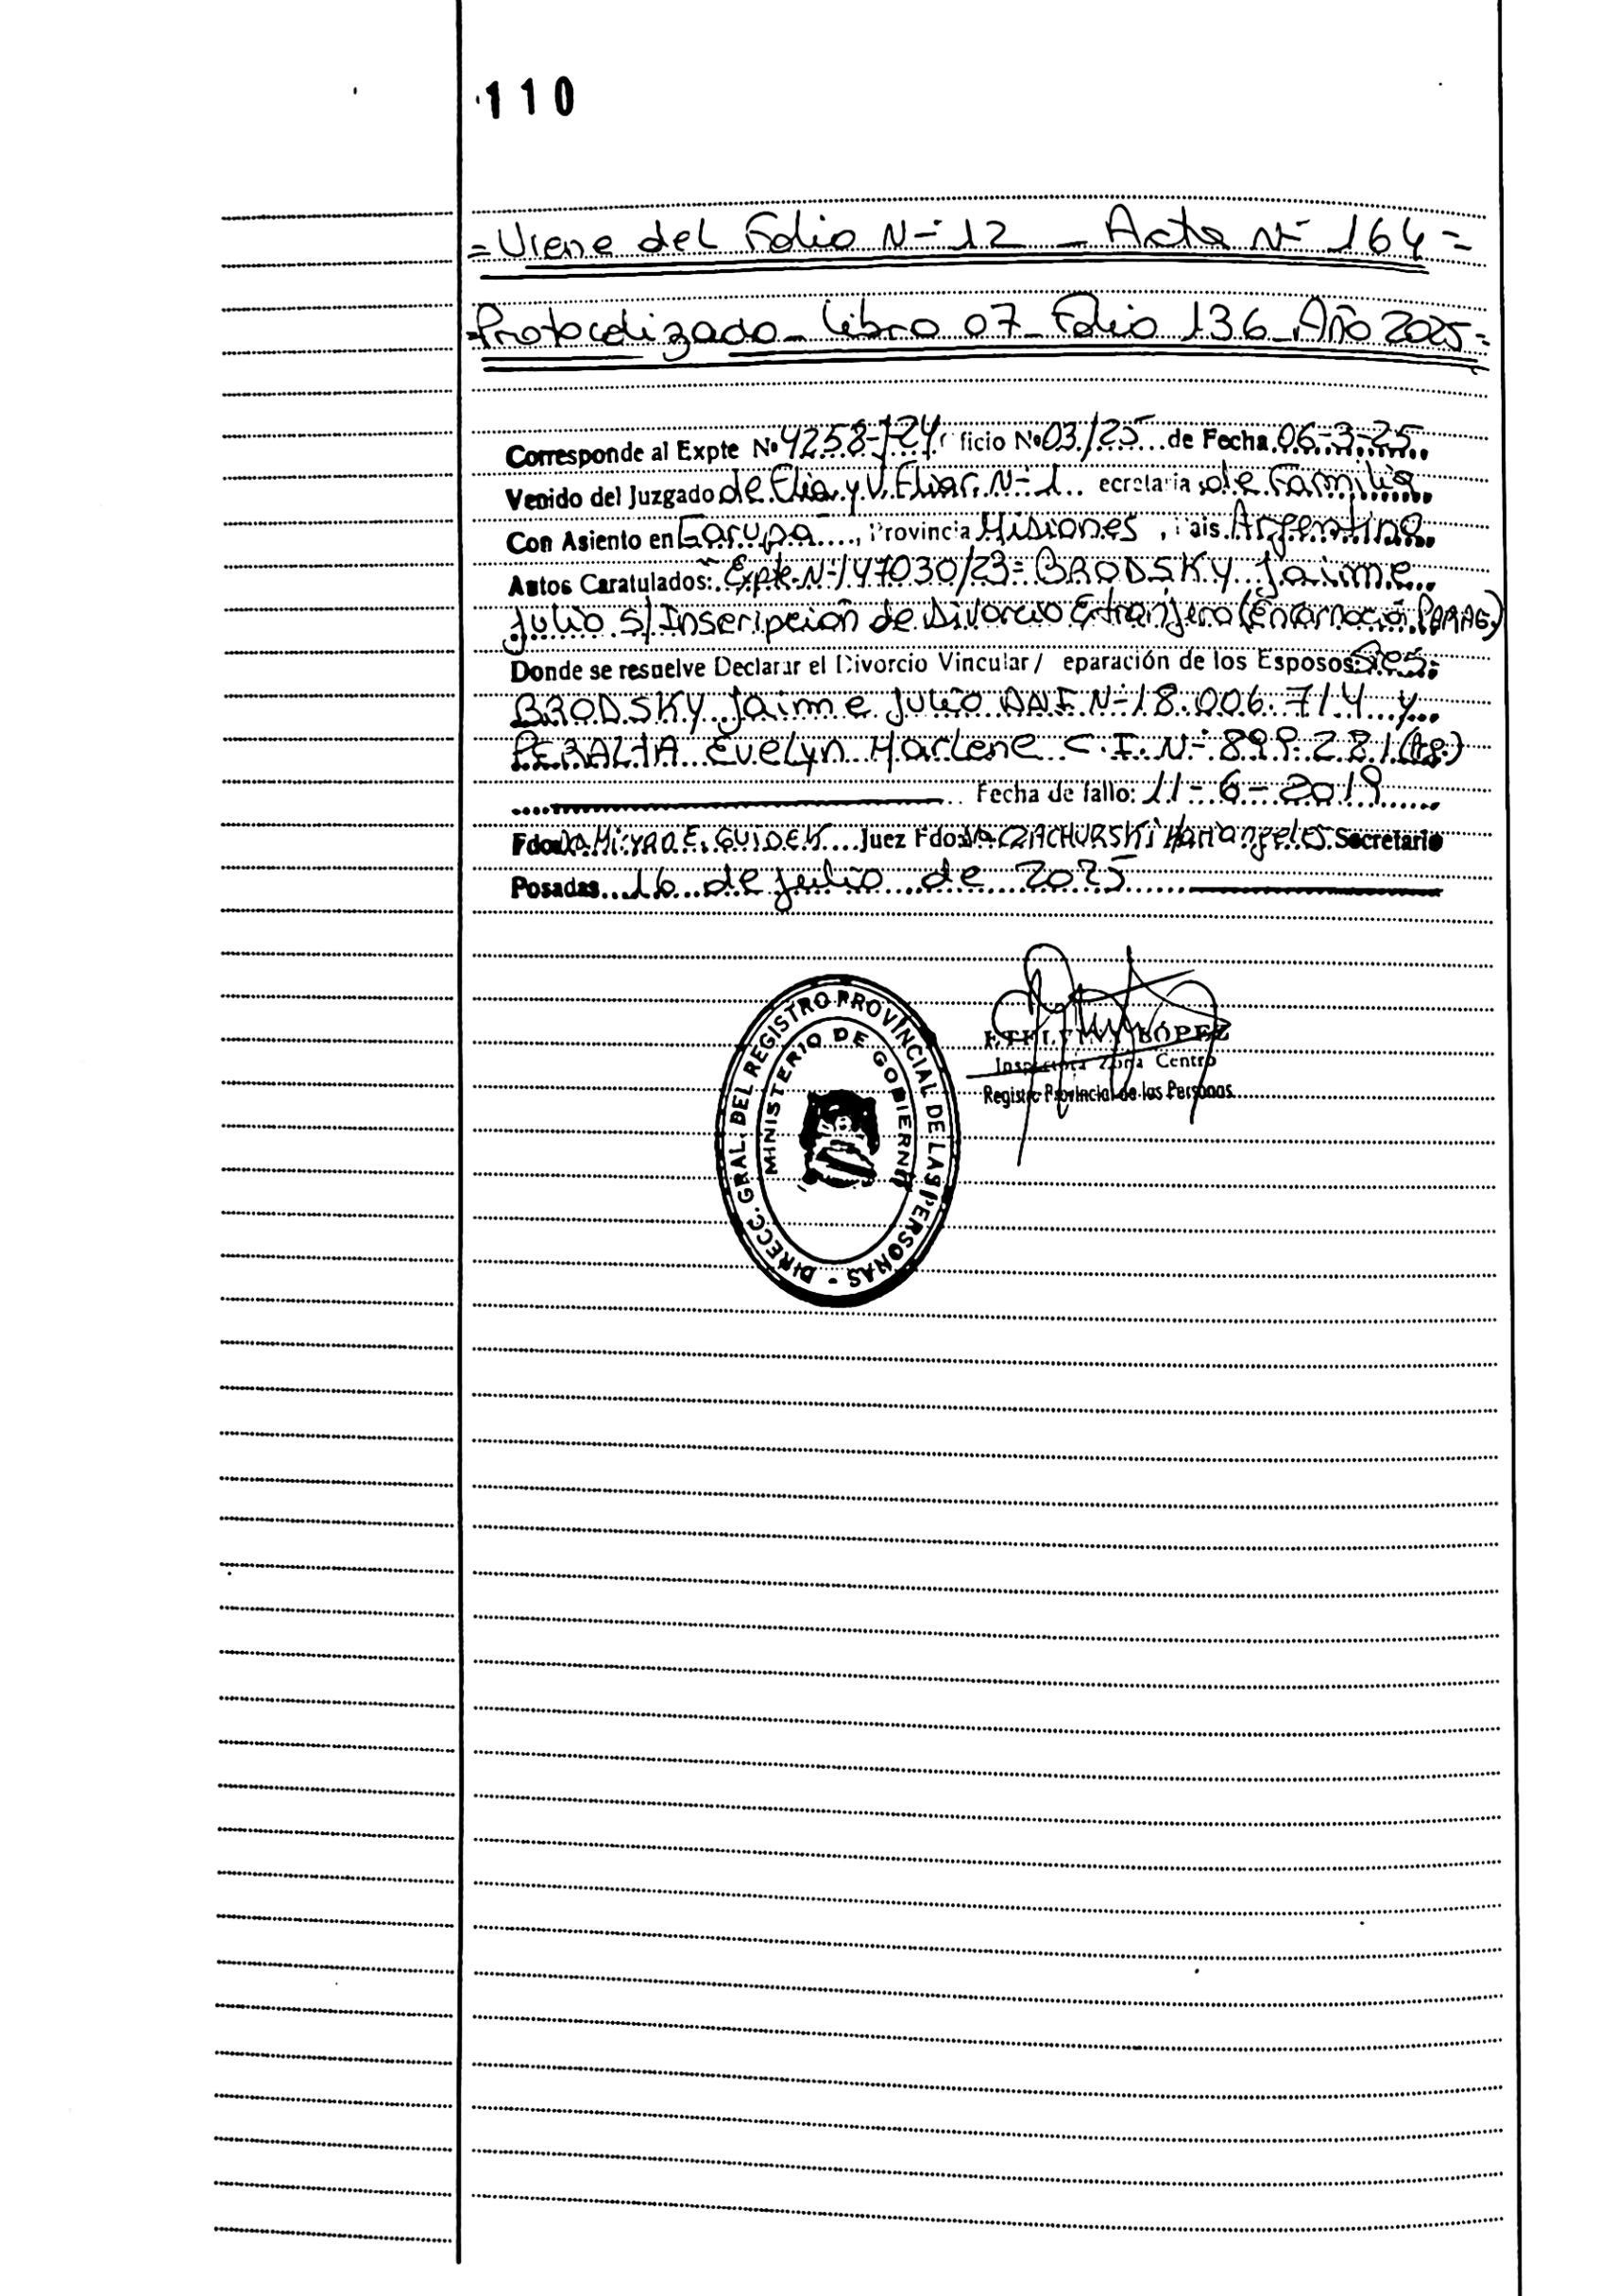 110
=Viene del Folio N- 12 - Acta N- 164=
=Protocolizado - Libro 07 - Folio 136 - Año 2025=
Corresponde al Expte Nº 4258-J-24, ficio Nº 03/25 de Fecha 06-3-25
Venido del Juzgado de Flia y V. Fliar. N-1 ecretaria de Familia
Con Asiento en Garupá, Provincia Misiones, ais Argentina
Autos Caratulados: Expte N-147030/23= BRODSKY Jaime
Julio S/ Inscripción de Divorcio Extranjero (Encarnación PARAG)
Donde se resuelve Declarar el Divorcio Vincular/ eparación de los Esposos: Sres.
BRODSKY Jaime Julio DNI N-18.006.714 y
PERALTA Evelyn Marlene C.I. N- 899.281
Fecha de fallo: 11-6-2019
Fdo: GUIDEK Juez Fdo: CZACHURSKI Secretario
Posadas 16 de julio de 2025
DIRECC. GRAL. DEL REGISTRO PROVINCIAL DE LAS PERSONAS -
MINISTERIO DE GOBIERNO
LÓPEZ
Inspectora Zona Centro
Registro Provincial de las Personas